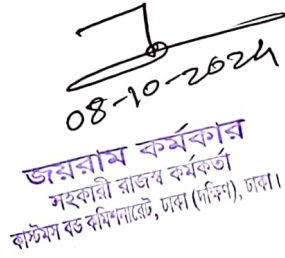 08-10-2024
জয়রাম কর্মকার
সহকারী রাজস্ব কর্মকর্তা
কাস্টমস বন্ড কমিশনারেট, ঢাকা (দক্ষিণ), ঢাকা।